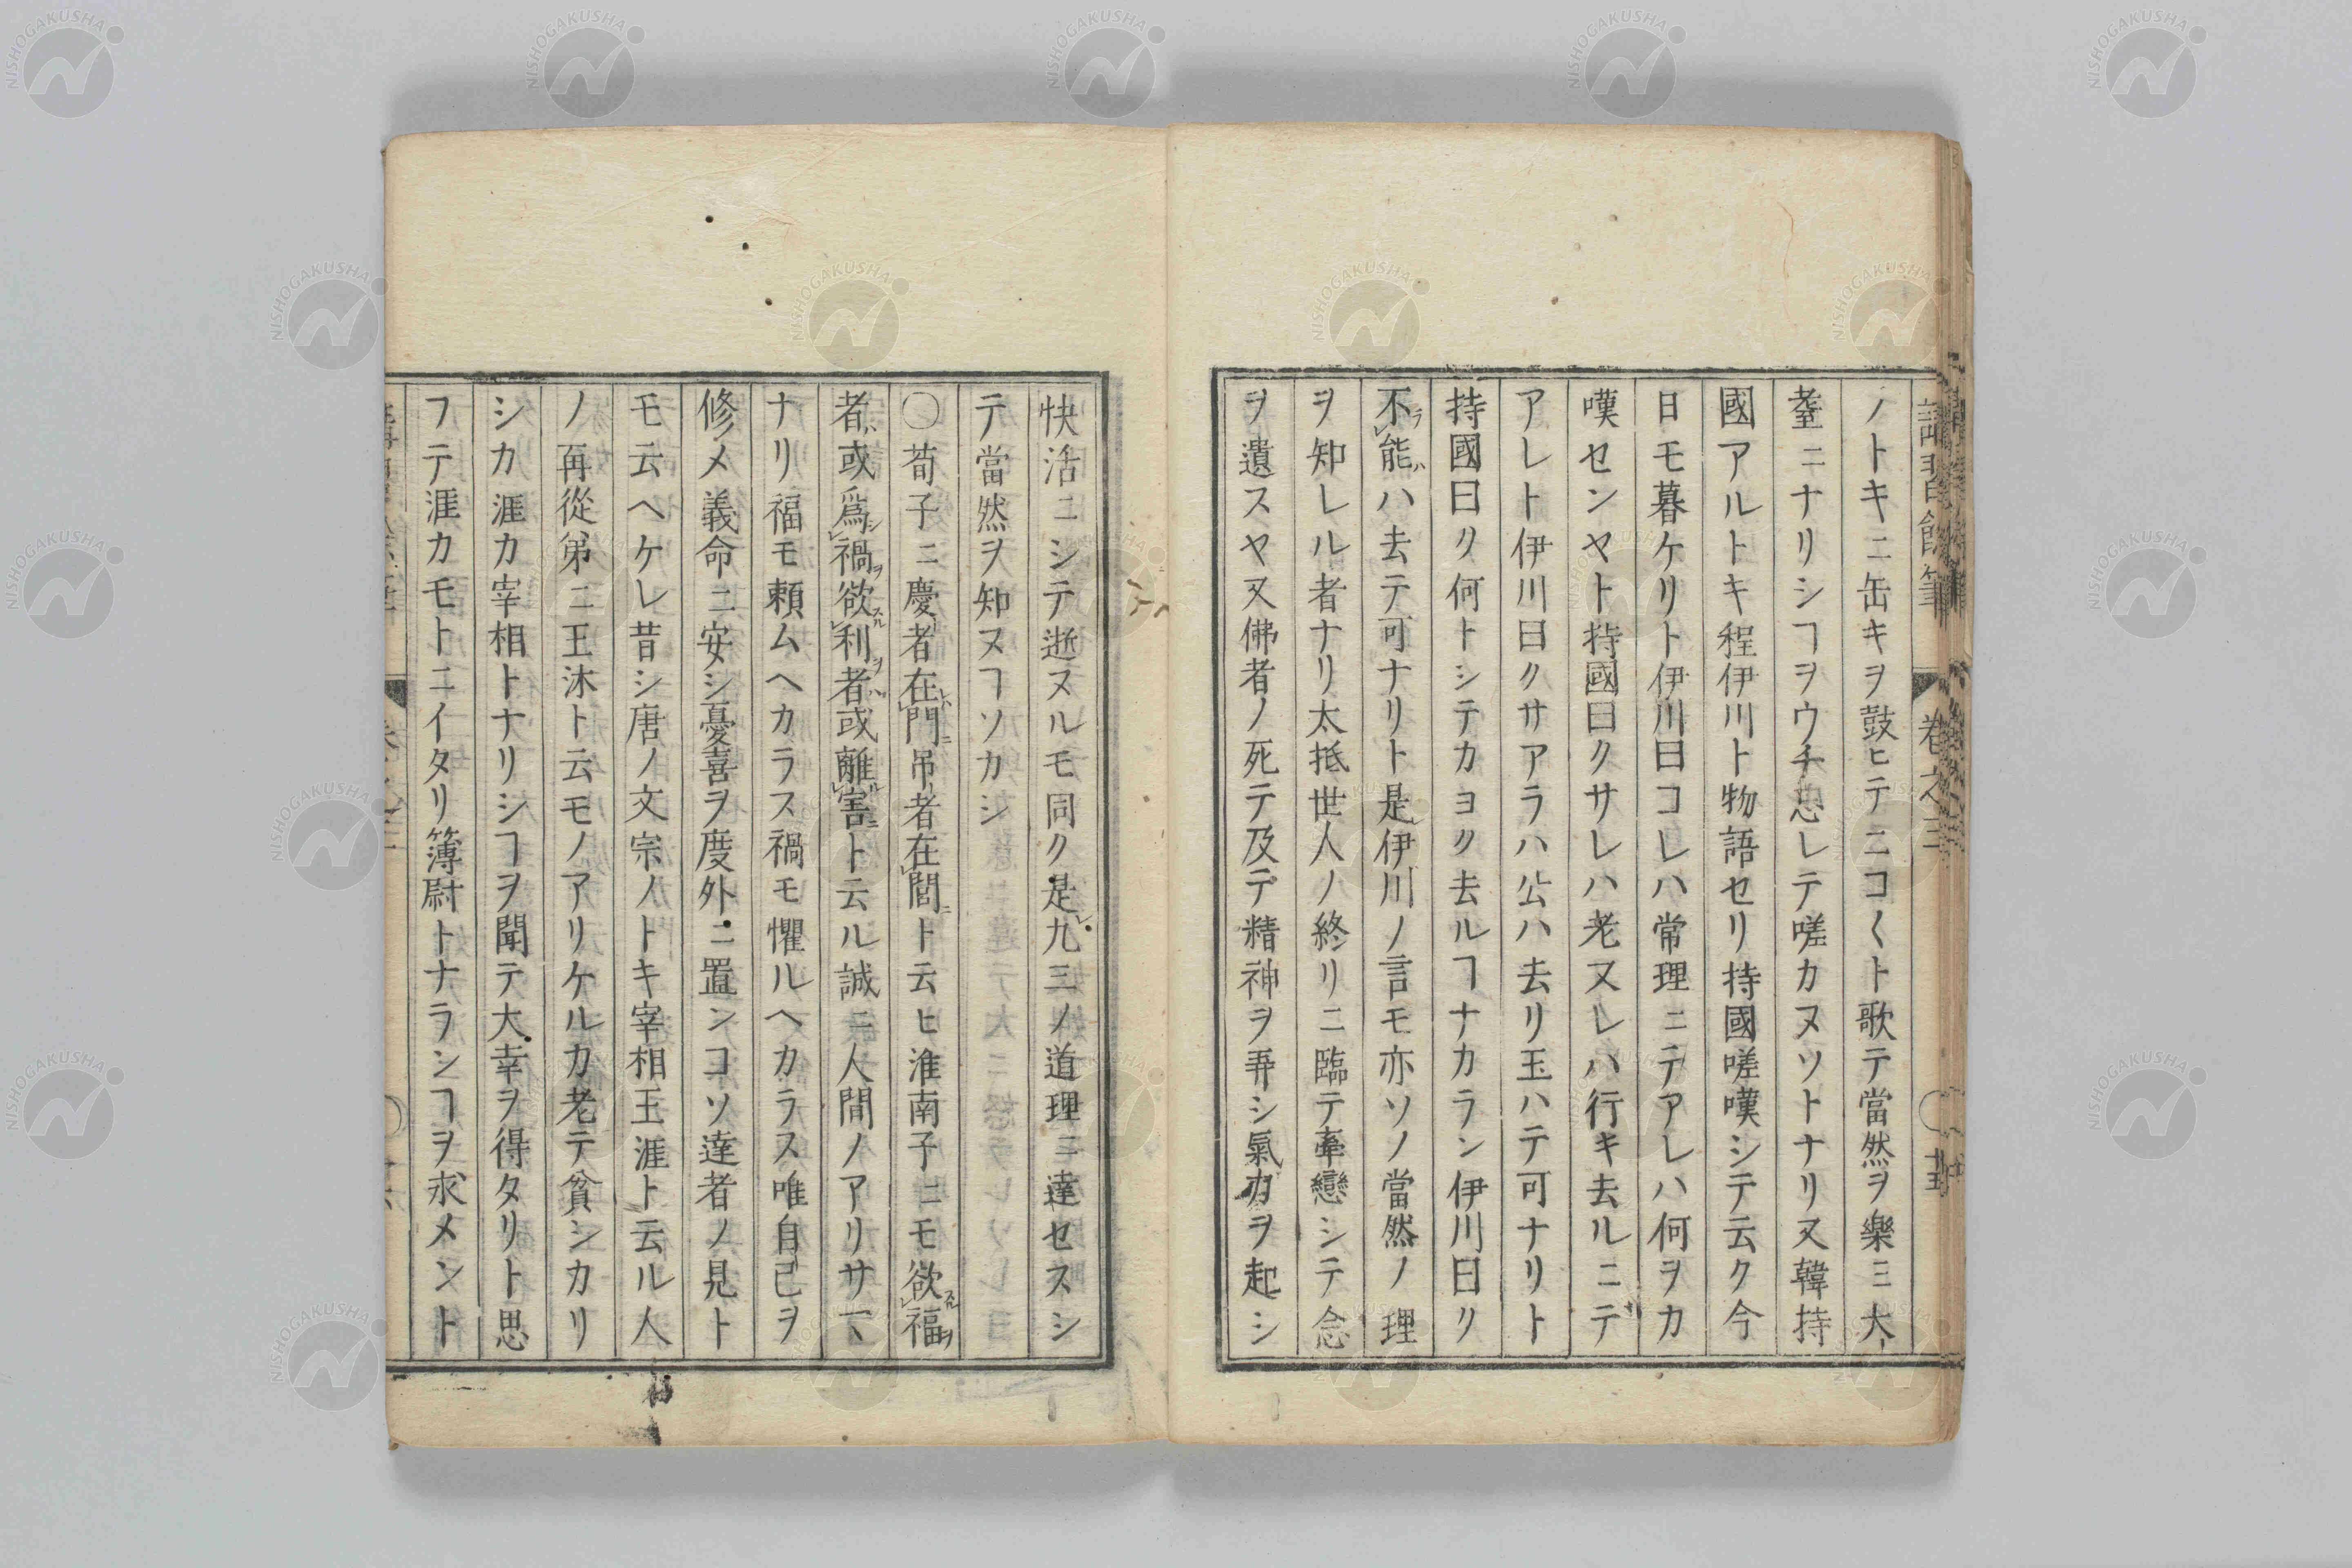 ノトキニ缶キヲ鼓ヒテニコ〱ト歌テ當然ヲ樂ミ大
耋ニナリシヿヲウチ忘レテ嗟カヌソトナリ又韓持
國アルトキ程伊川ト物語セリ持國嗟嘆シテ云ク今
日モ暮ケリト伊川曰コレハ常理ニテアレハ何ヲカ
嘆センヤト持國曰クサレハ老ヌレハ行キ去ルニテ
アレト伊川曰クサアラハ公ハ去リ玉ハテ可ナリト
持國曰ク何トシテカヨク去ルヿナカラン伊川曰ク
不能ハ去テ可ナリト是伊川ノ言モ亦ソノ當然ノ理
ヲ知レル者ナリ太抵世人ノ終リニ臨テ牽戀シテ念
ヲ遺スヤ又佛者ノ死テ及テ精神ヲ弄シ氣力ヲ起シ
快活ニシテ逝ヌルモ同ク是九三ノ道理ニ達セスシ
テ當然ヲ知ヌヿソカシ
〇荀子ニ慶者在門吊者在閭ト云ヒ淮南子ニモ欲福
者或爲禍欲利者或離害ト云ル誠ニ人間ノアリサマ
ナリ福モ頼ムヘカラス禍モ懼ルヘカラス唯自己ヲ
修メ義命ニ安シ憂喜ヲ度外ニ置ンコソ達者ノ見ト
モ云ヘケレ昔シ唐ノ文宗ノトキ宰相王涯ト云ル人
ノ再從弟ニ王沐ト云モノアリケルカ老テ貧シカリ
シカ涯カ宰相トナリシヿヲ聞テ大幸ヲ得タリト思
フテ涯カモトニイタリ簿尉トナランヿヲ求メント